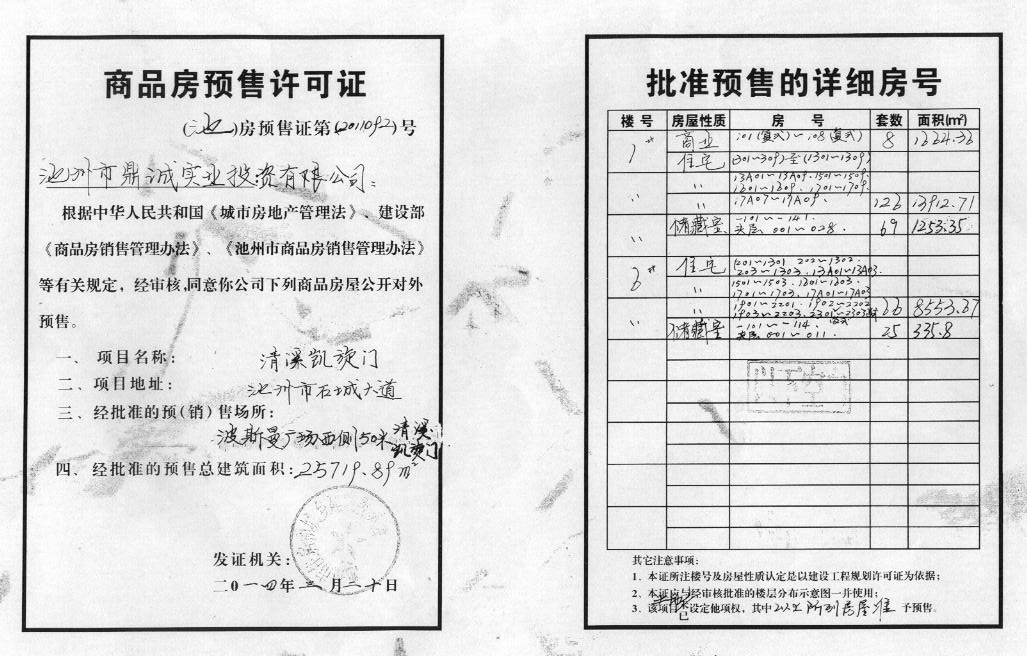 商品房预售许可证
(池)房预售证第(2011092)号
池州市鼎诚实业投资有限公司:
根据中华人民共和国《城市房地产管理法》、建设部
《商品房销售管理办法》、《池州市商品房销售管理办法》
等有关规定，经审核,同意你公司下列商品房屋公开对外
预售。
一、项目名称: 清溪凯旋门
二、项目地址: 池州市石城大道
三、经批准的预(销)售场所:
波斯曼广场西侧150米清溪
凯旋门
四、经批准的预售总建筑面积:25719.89㎡
发证机关:
二0一四年三月二十日
批准预售的详细房号
楼号 房屋性质 房号 套数 面积(㎡)
1# 商业 101(复式)~108(复式) 8 1664.36
住宅 (301~309)至(1301~1309)
〃 13A01~13A09. 1501~1509.
1601~1609. 1701~1709.
〃 17A07~17A09. 126 13912.71
〃 储藏室 -101~-141. 69 1253.35
夹层 001~028.
住宅 1201~1301 202~1302.
203~1303. 13A01~13A03.
1501~1503. 1601~1603.
1701~1703. 17A01~17A03
〃 1901~2201. 1902~2202 66 8553.67
1903~2203. 2301~2303
〃 储藏室 -101~-114. 25 335.8
夹层 001~011.
其它注意事项:
1、本证所注楼号及房屋性质认定是以建设工程规划许可证为依据;
2、本证应与经审核批准的楼层分布示意图一并使用;
3、该项目已设定他项权，其中以上所列房屋准予预售。